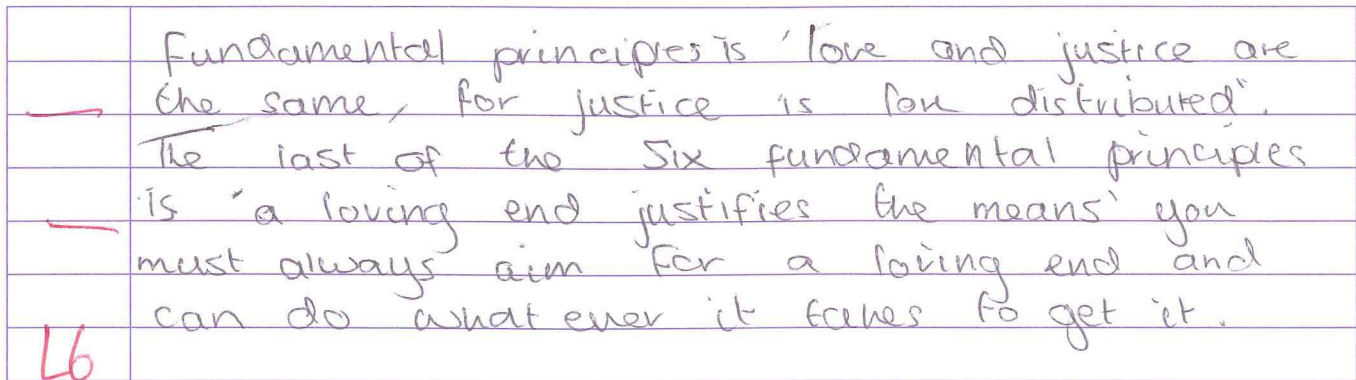 fundamental principles is 'love and justice are
the same, for justice is love distributed".
The last of the six fundamental principles
is 'a loving end justifies the means' you
must always aim for a loving end and
can do what ever it takes to get it.
L6